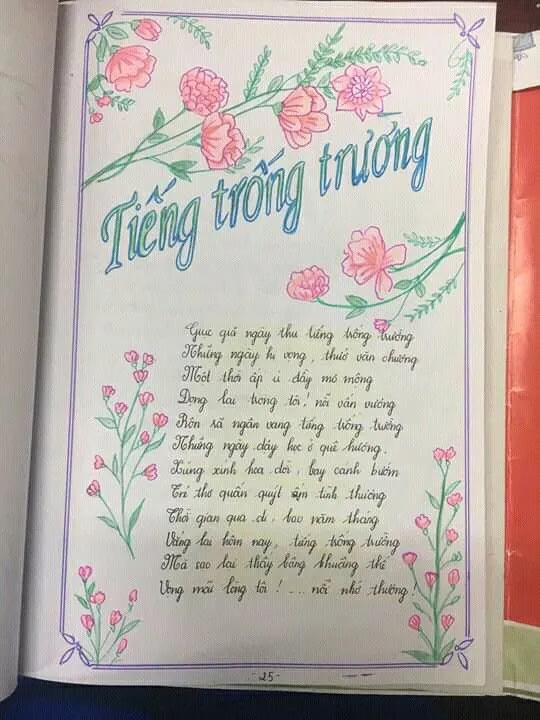 Tiếng trống trường
Giục giã ngày thu tiếng trống trường
Những ngày hi vọng, thuở văn chương
Một thời ấp ủ đầy mơ mộng
Đọng lại trong tôi! nỗi vấn vương
Rộn rã ngân vang tiếng trống trường
Những ngày dạy học ở quê hương.
xinh hoa đời, bay cánh bướm
Trẻ thơ quấn quýt ấm tình thương
Thời gian qua đi, bao năm tháng
Vẳng lại hôm nay, tiếng trống trường
Mà sao lại thấy bâng khuâng thế
Vọng mãi lòng tôi! ... nỗi nhớ thương!
-25-